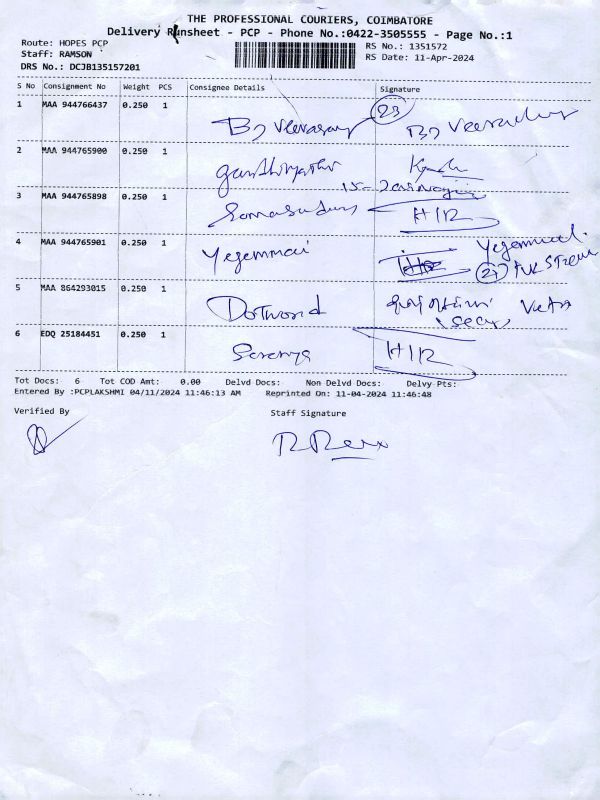 THE PROFESSIONAL COURIERS, COIMBATORE
Delivery Runsheet - PCP - Phone No.:0422-3505555 - Page No.:1
Route: HOPES PCP RS No.: 1351572
Staff: RAMSON RS Date: 11-Apr-2024
DRS No.: DCJB135157201
S No Consignment No Weight PCS Consignee Details Signature
1 MAA 944766437 0.250 1 23
2 MAA 944765900 0.250 1
3 MAA 944765898 0.250 1 H/R
4 MAA 944765901 0.250 1 Yegemmai
5 MAA 864293015 0.250 1
6 EDQ 25184451 0.250 1 Saranya H/R
Tot Docs: 6 Tot COD Amt: 0.00 Delvd Docs: Non Delvd Docs: Delvy Pts:
Entered By :PCPLAKSHMI 04/11/2024 11:46:13 AM Reprinted On: 11-04-2024 11:46:48
Verified By Staff Signature